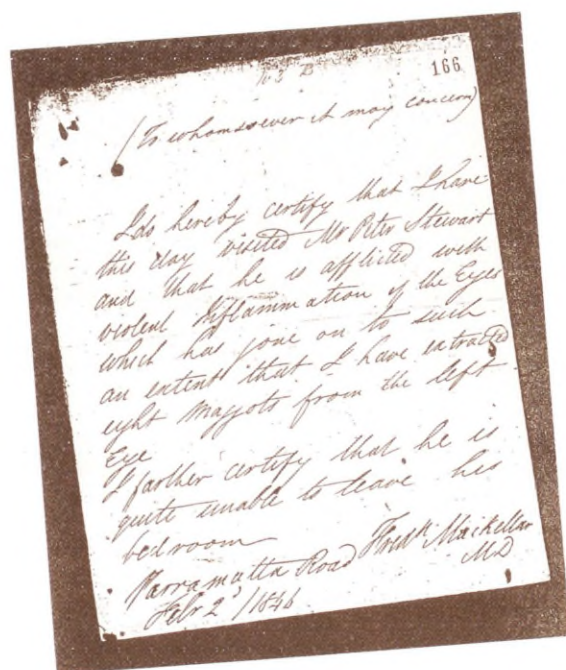 166
(To whomsoever it may concern)
I do hereby certify that I have
this day visited Mr Peter Stewart
and that he is afflicted with
violent Inflammation of the Eyes
which has gone on to such
an extent that I have extracted
eight maggots from the left
Eye
I farther certify that he is
quite unable to leave his
bedroom
Fredk Mackellar
MD
Parramatta Road
Feby 2d/1846